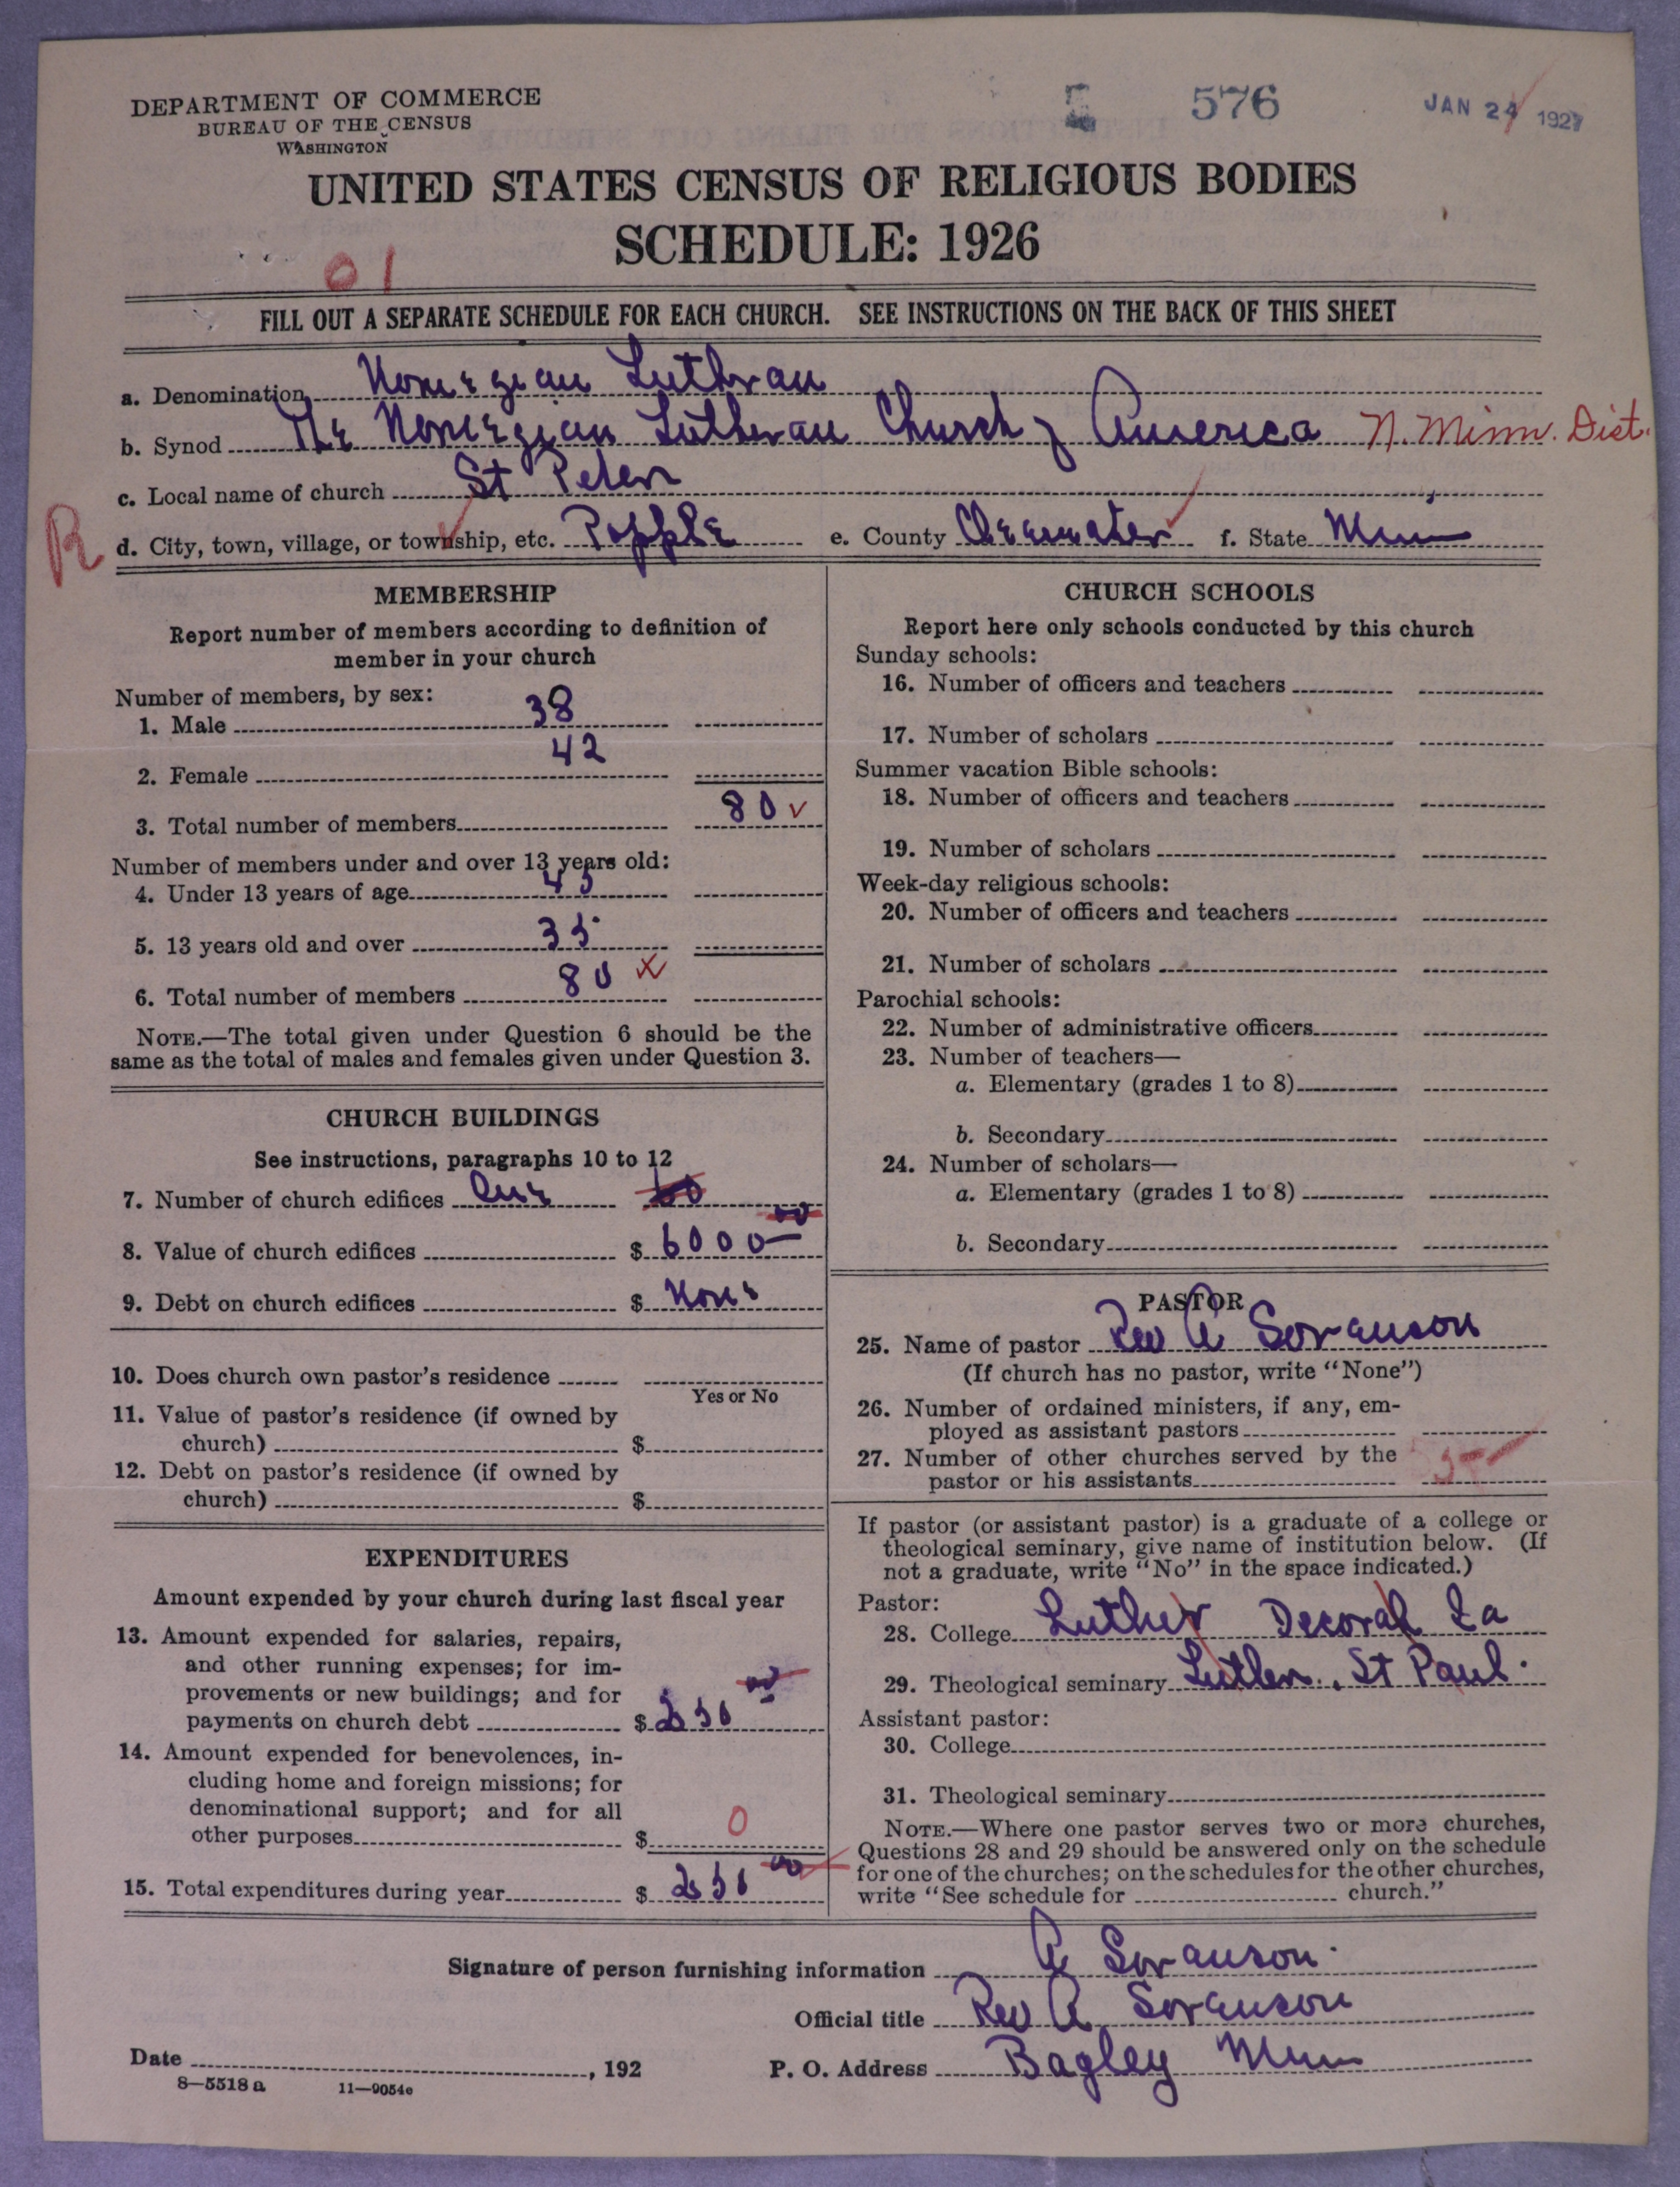 DEPARTMENT OF COMMERCE
BUREAU OF THE CENSUS
WASHINGTON
576
JAN 24 1927
UNITED STATES CENSUS OF RELIGIOUS BODIES
SCHEDULE: 1926
01
FILL OUT A SEPARATE SCHEDULE FOR EACH CHURCH. SEE INSTRUCTIONS ON THE BACK OF THIS SHEET
a. Denomination Norwegian Lutheran
b. Synod The Norwegian Lutheran Church of America N. Minn. Dist.
c. Local name of church St Peter
R
d. City, town, village, or township, etc. Popple e. County Clearwater f. State Minn
MEMBERSHIP
Report number of members according to definition of
member in your church
Number of members, by sex:
1. Male 38
2. Female 42
3. Total number of members 80 ✓
Number of members under and over 13 years old:
4. Under 13 years of age 45
5. 13 years old and over 35
6. Total number of members 80 x
NOTE.—The total given under Question 6 should be the
same as the total of males and females given under Question 3.
CHURCH BUILDINGS
See instructions, paragraphs 10 to 12
7. Number of church edifices One 60
8. Value of church edifices $ 6000 00
9. Debt on church edifices $ None
10. Does church own pastor's residence
Yes or No
11. Value of pastor's residence (if owned by
church) $
12. Debt on pastor's residence (if owned by
church) $
EXPENDITURES
Amount expended by your church during last fiscal year
13. Amount expended for salaries, repairs,
and other running expenses; for im-
provements or new buildings; and for
payments on church debt $ 250 00
14. Amount expended for benevolences, in-
cluding home and foreign missions; for
denominational support; and for all
other purposes $ 0
15. Total expenditures during year $ 250 00
CHURCH SCHOOLS
Report here only schools conducted by this church
Sunday schools:
16. Number of officers and teachers
17. Number of scholars
Summer vacation Bible schools:
18. Number of officers and teachers
19. Number of scholars
Week-day religious schools:
20. Number of officers and teachers
21. Number of scholars
Parochial schools:
22. Number of administrative officers
23. Number of teachers—
a. Elementary (grades 1 to 8)
b. Secondary
24. Number of scholars—
a. Elementary (grades 1 to 8)
b. Secondary
PASTOR
25. Name of pastor Rev A Sovanson
(If church has no pastor, write "None")
26. Number of ordained ministers, if any, em-
ployed as assistant pastors
27. Number of other churches served by the
pastor or his assistants 5
If pastor (or assistant pastor) is a graduate of a college or
theological seminary, give name of institution below. (If
not a graduate, write "No" in the space indicated.)
Pastor:
28. College Luther Decorah Ia
29. Theological seminary Luther., St Paul.
Assistant pastor:
30. College
31. Theological seminary
NOTE.—Where one pastor serves two or more churches,
Questions 28 and 29 should be answered only on the schedule
for one of the churches; on the schedules for the other churches,
write "See schedule for church."
Signature of person furnishing information A Sovanson
Official title Rev A Sovanson
Date , 192 P. O. Address Bagley Minn
8—5518 a 11—9054e